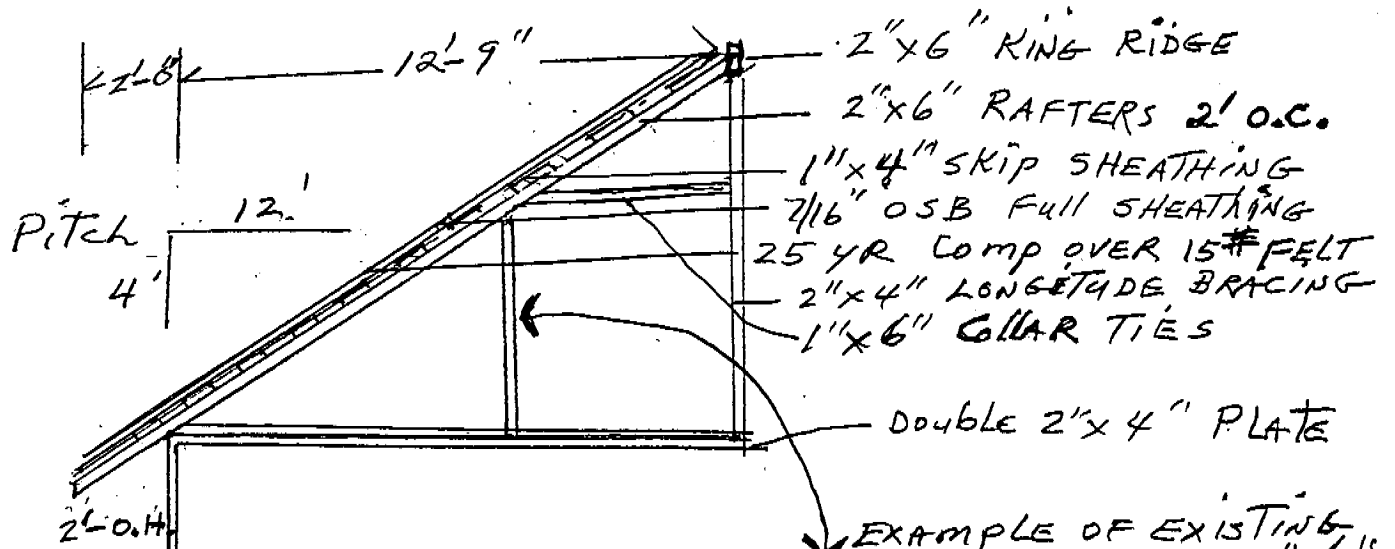 2'-0"
12'-9"
2"x6" KING RIDGE
2"x6" RAFTERS 2' O.C.
1"x4" SKIP SHEATHING
7/16" OSB Full SHEATHING
25 YR Comp OVER 15# FELT
2"x4" LONGETUDE BRACING
1"x6" COllAR TIES
Pitch
12'
4'
DOUBLE 2"x4" PLATE
2'-O.H.
EXAMPLE OF EXISTING